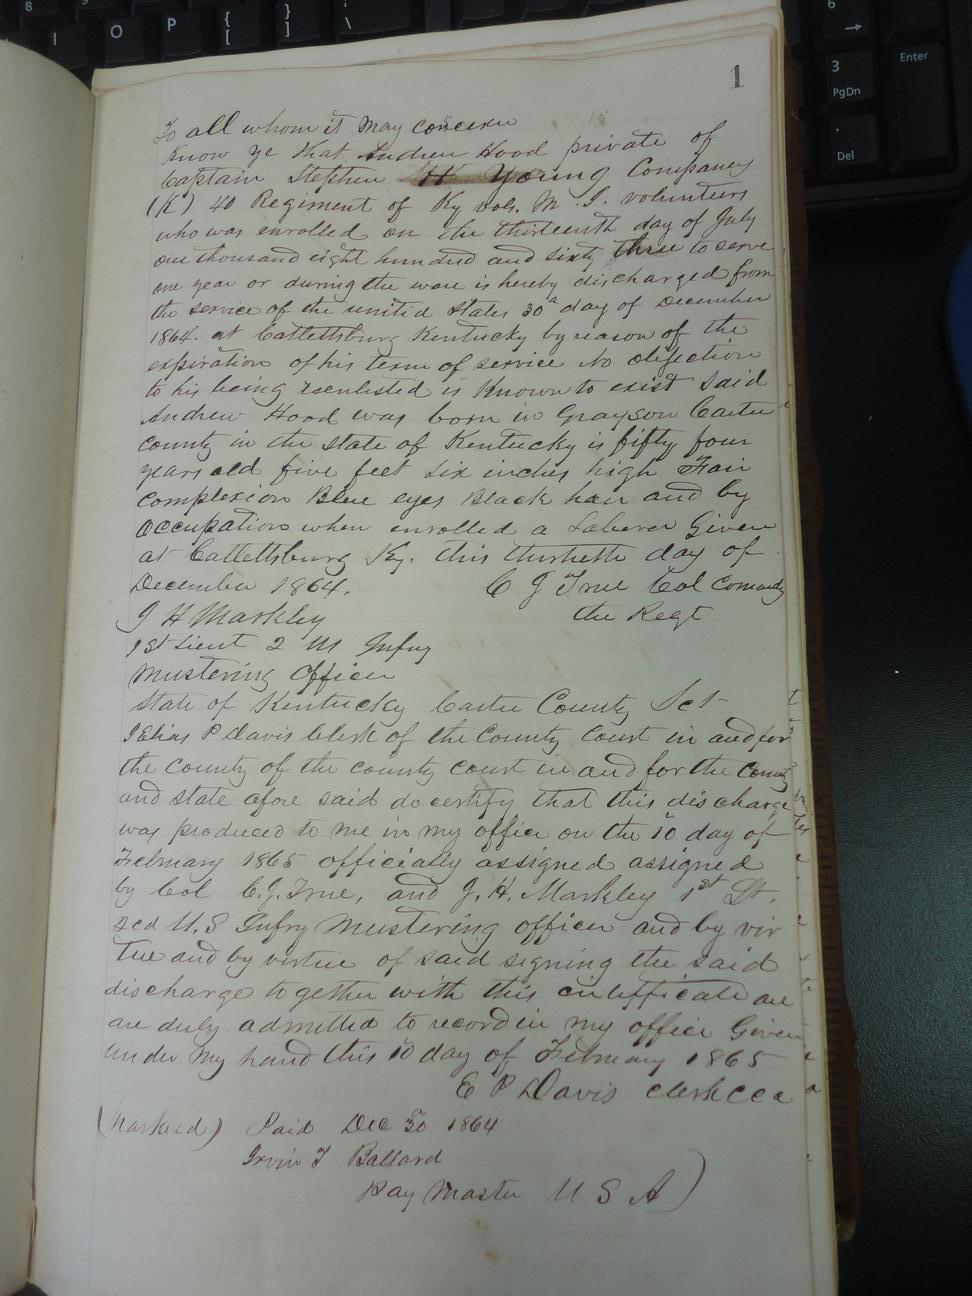 1
To all whom it may concern
Know ye that Andrew Hood private of
Captain Stephen H Young Company
(K) 40 Regiment of Ky vols. M. I. volunteers
who was enrolled on the thirteenth day of July
one thousand eight hundred and sixty three to serve
one year or during the ware is hereby discharged from
the service of the united States 30 day of December
1864. at Cattettsburg Kentucky by reason of the
expiration of his term of service No objection
to his being reenlisted is Known to exist Said
Andrew Hood was born in Grayson Carter
County in the state of Kentucky is fifty four
years old five feet six inches high Fair
Complexion Blue eyes Black hair and by
Occupation when enrolled a Laborer Given
at Cattettsburg Ky. this thirtieth day of
December 1864. C J True Col Comondg
J H Markley the Regt
1st Lieut 2 Infry
Mustering Officer
State of Kentucky Carter County Sct
I Elias P Davis Clerk of the County Court in and for
the County of the county court in and for the County
and state afore said do certify that this discharge
was produced to me in my office on the 10 day of
February 1865 officially assigned assigned
by Col C. J. True, and J. H. Markley 1st Lt.
2cd U. S Infry Mustering officer and by vir
tue and by virtue of said signing the said
discharge together with this certifficate are
are duly admitted to record in my office Given
under my hand this 10 day of February 1865
E P Davis clerk CCC
(Marked) Paid Dec 30 1864
Irvin T Ballard
Pay Master U S A)
I
O
P
{
[
}
]
|
\
8
9
6
→
3
PgDn
.
Del
Enter